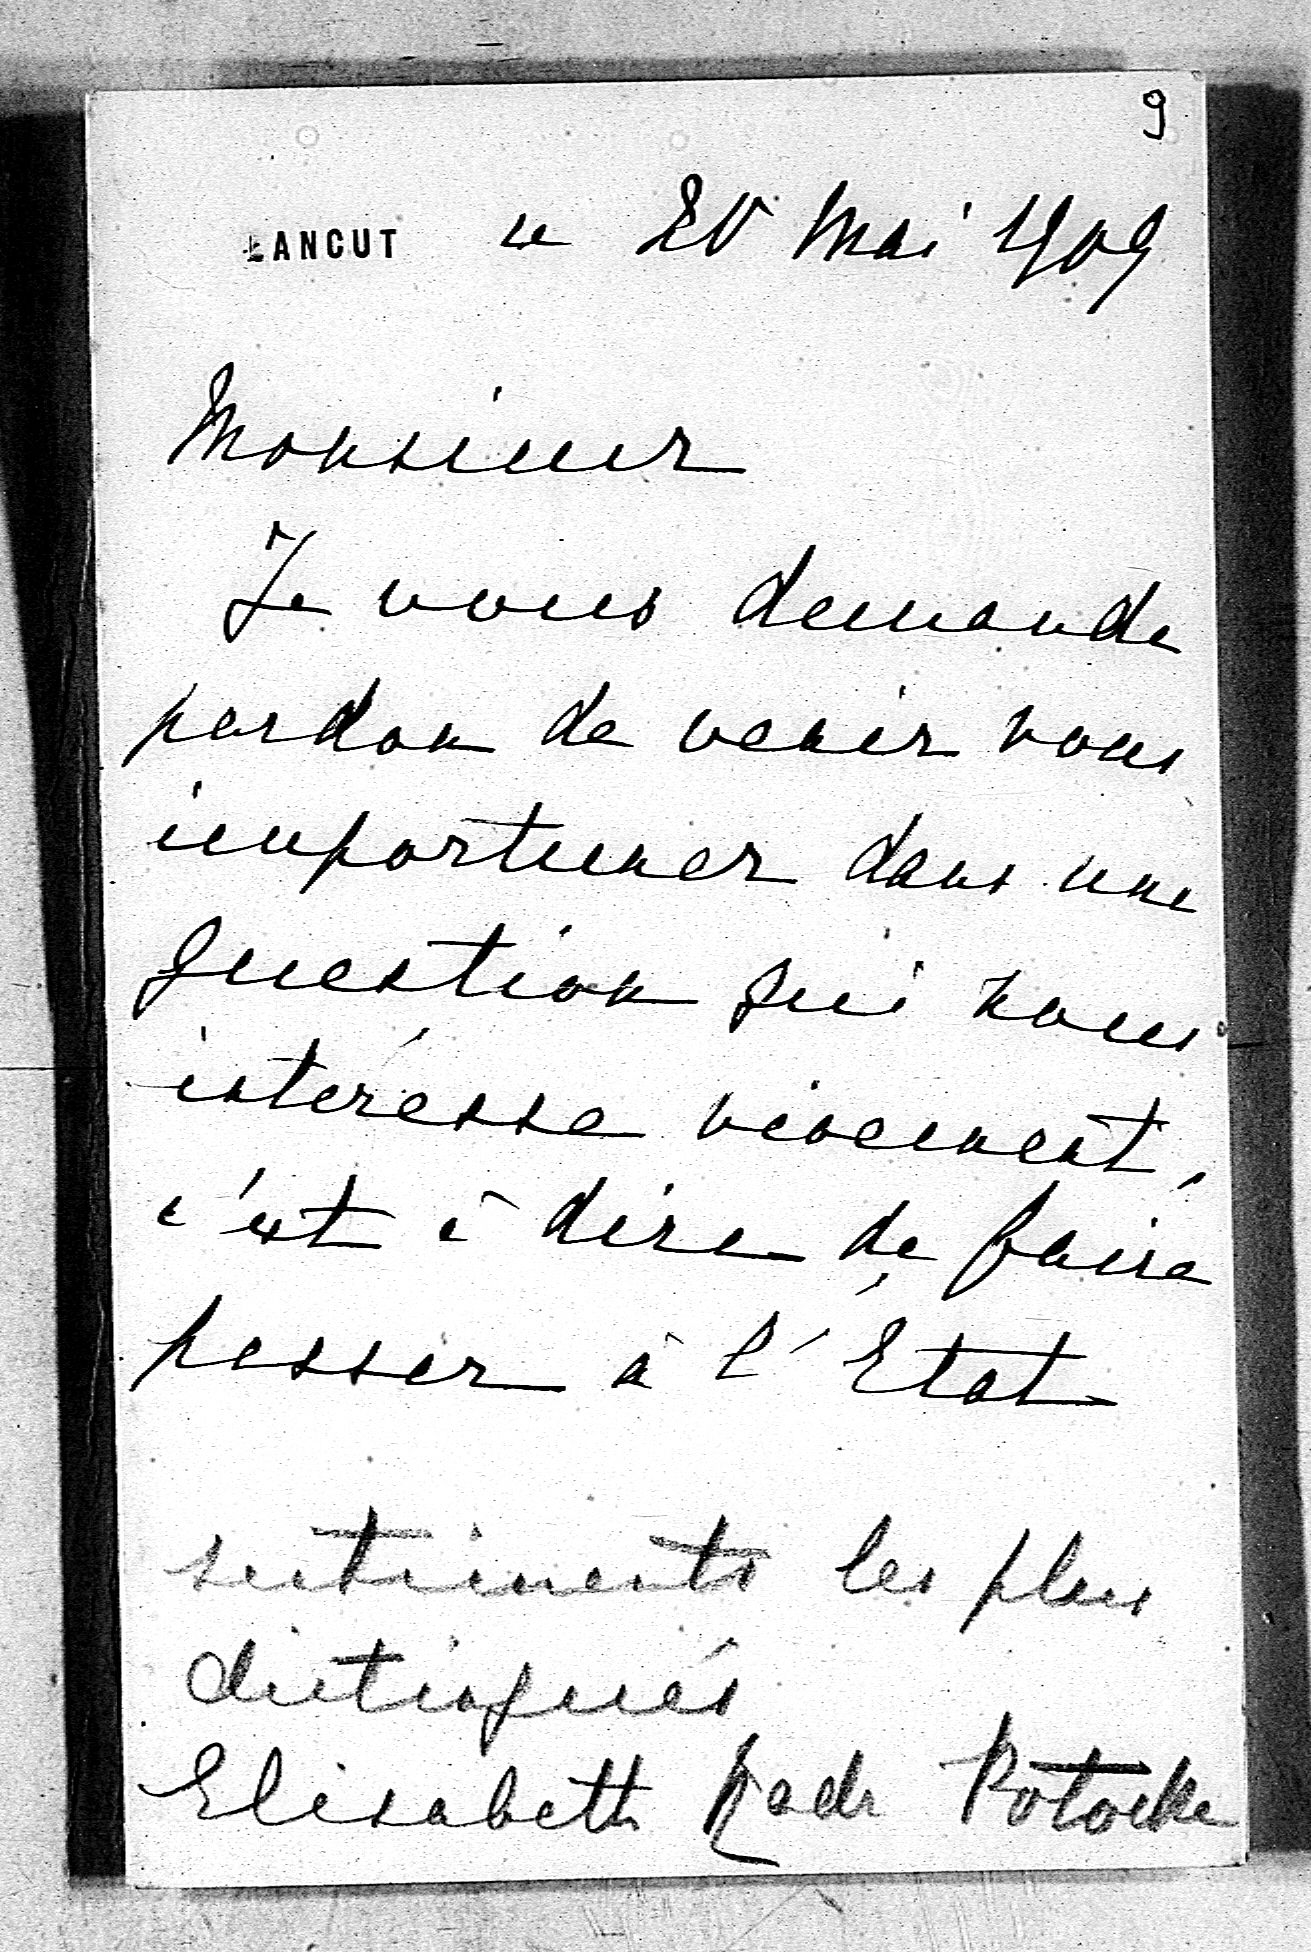 9
ŁANCUT le 20 Mai 1909
Monsieur
Je vous demande
pardon de venir vous
importuner dans une
question qui nous
intéresse vivement,
c'est à dire de faire
passer à l'État
sentiments les plus
distingués
Elisabeth Radz Potocka